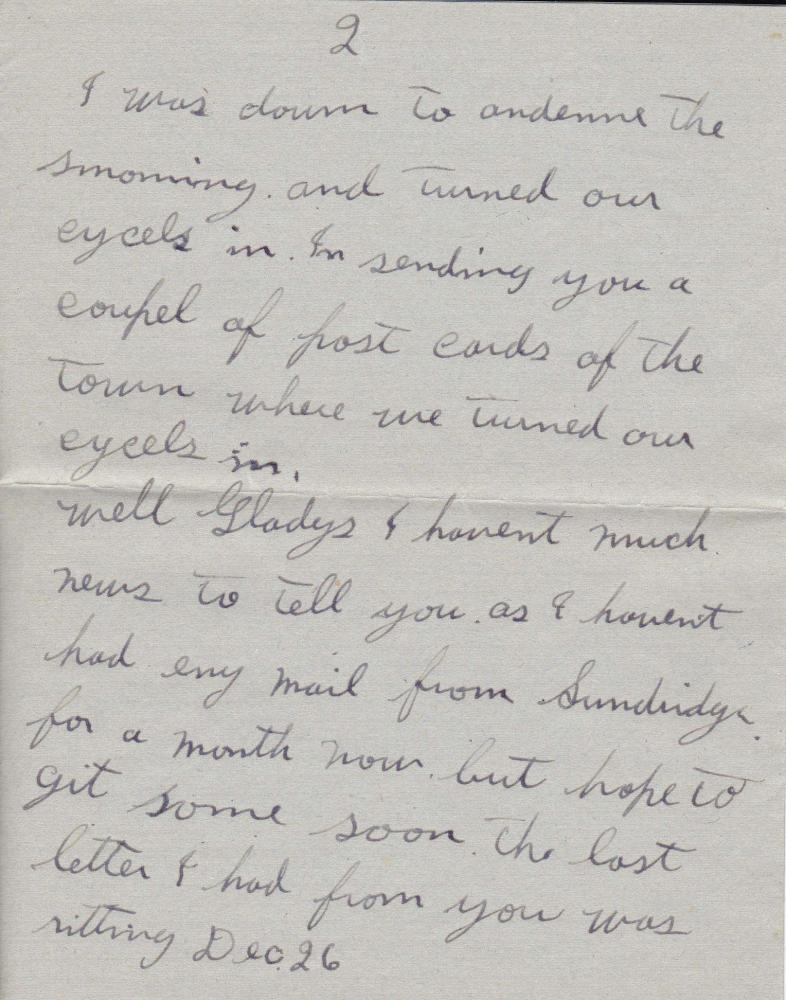 2
I was down to andenne the
smorning. and turned our
cycels in. Im sending you a
coupel of post cards of the
town where we turned our
cycels in.
well Gladys I havent much
news to tell you. as I havent
had eny mail from Sundridge.
for a month now. but hope to
git some soon. the last
letter I had from you was
ritting Dec. 26